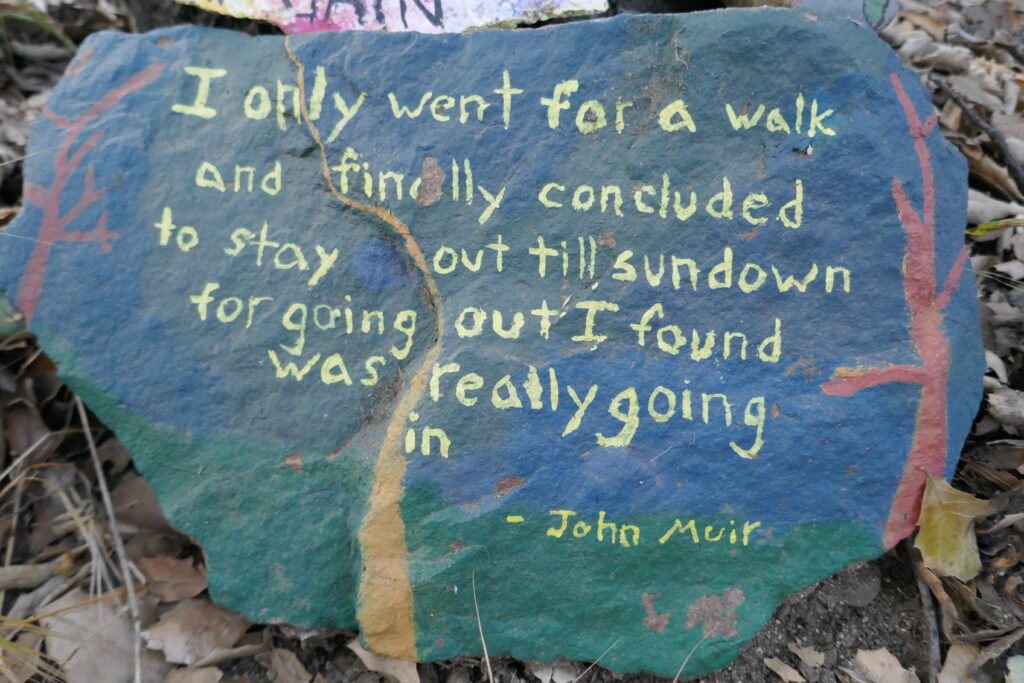 I only went for a walk
and finally concluded
to stay out till sundown
for going out I found
was really going
in
- John Muir